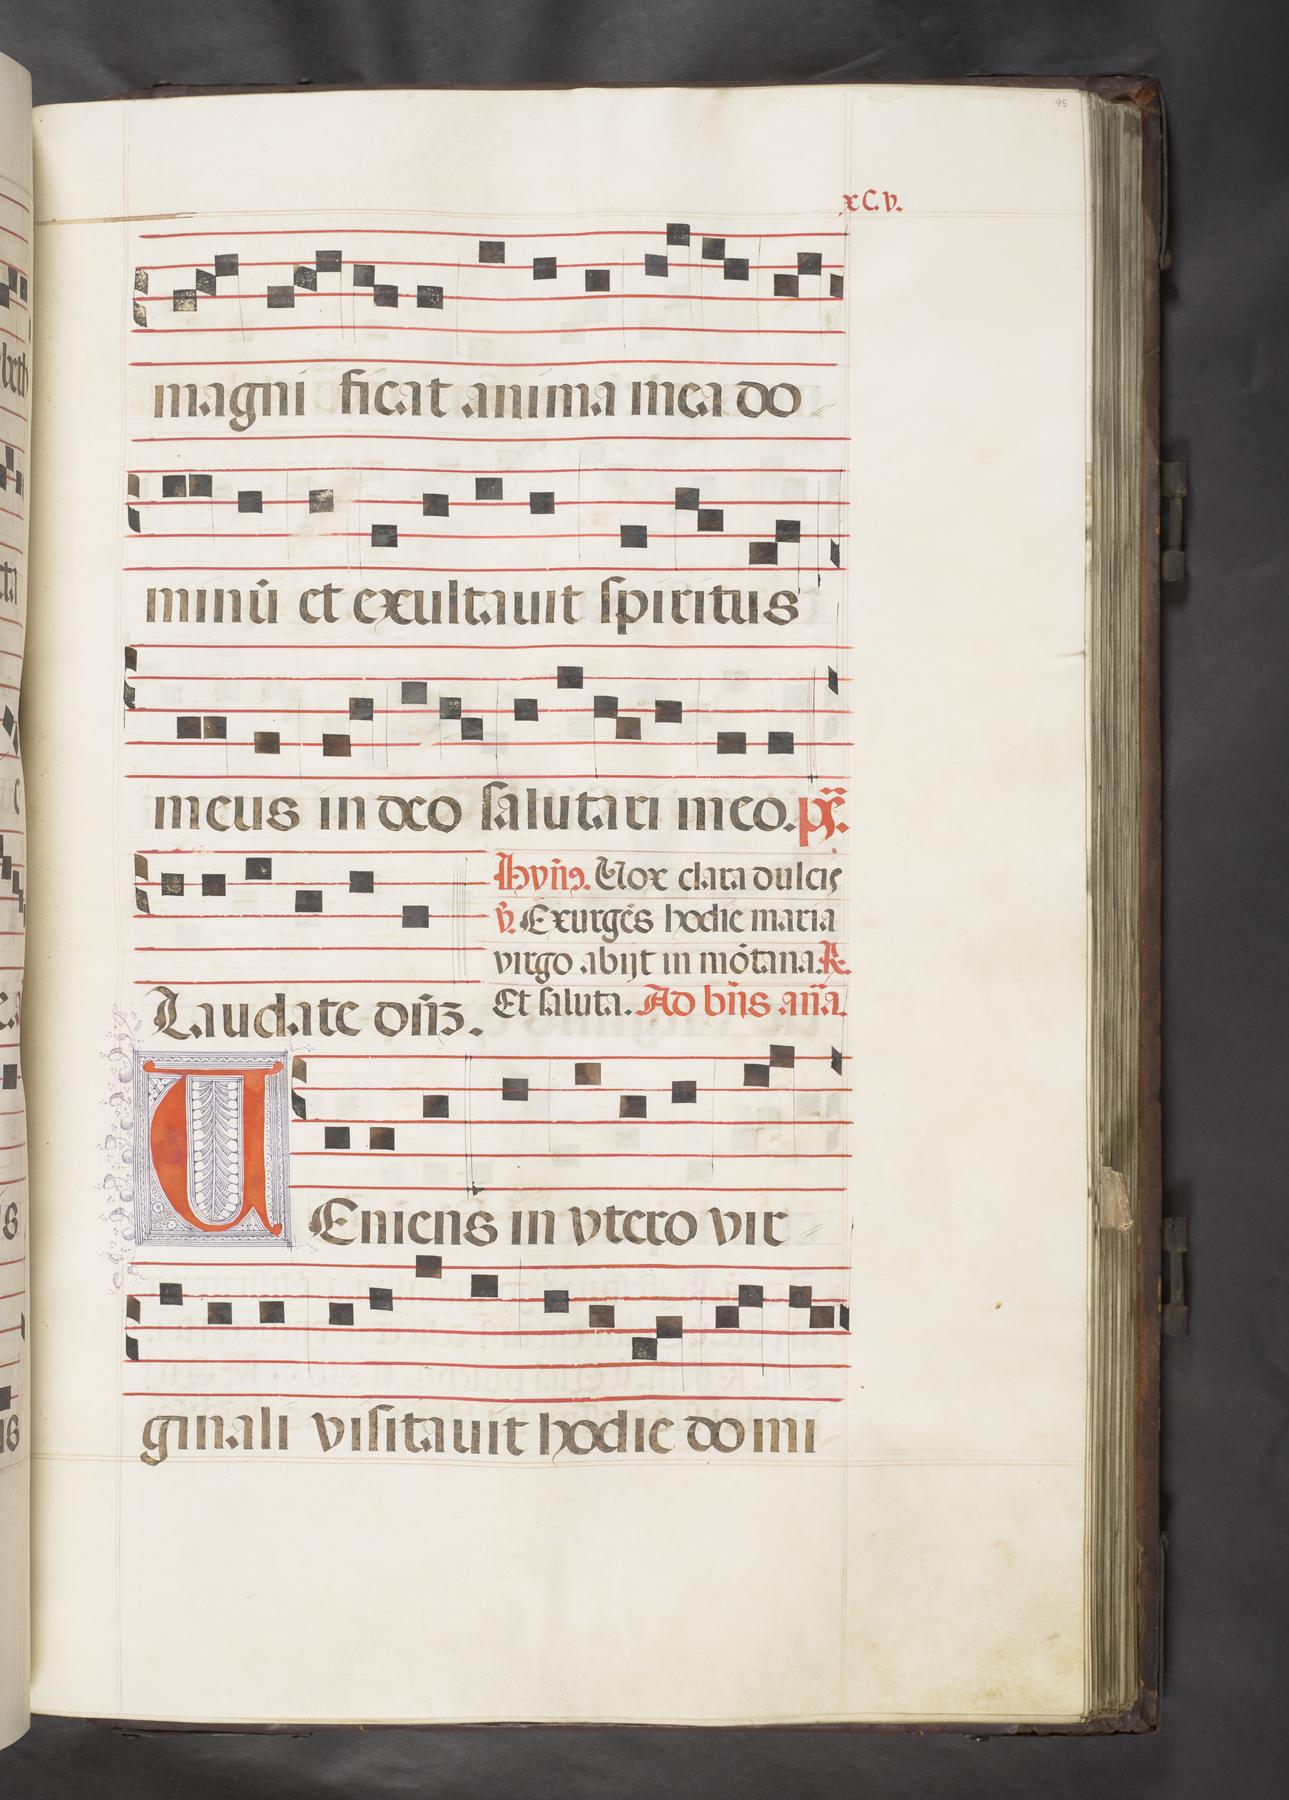 95
xC.v.
magni ficat anima mea do
minū et exultauit spiritus
meus in deo salutari meo. ps.
Hym̄. Uox clara dulcis
v̄. Exurgēs hodie maria
virgo abijt in mōtana. R.
Laudate dn̄z. Et saluta. Ad bn̄s an̄a.
UEniens in vtero vir
ginali visitauit hodie domi